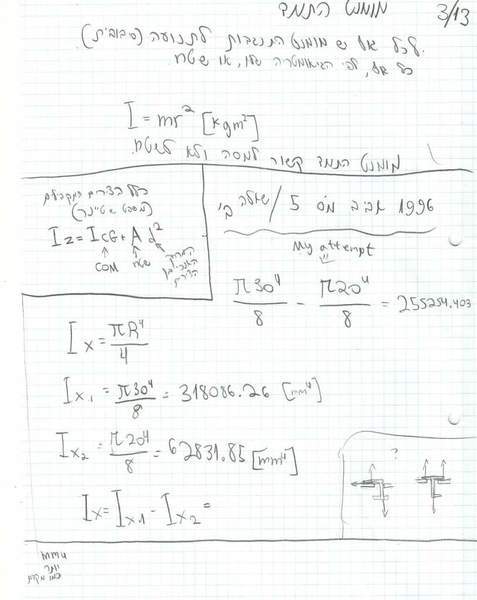 3/13
מומנט התמד
לכל אלמנט יש מומנט התנגדות לתנועה (סיבובית).
כל אלמנט, לפי הגיאומטריה שלו, או שטח.
I = mr² [kgm²]
מומנט התמד קשור למסה ולא לשטח.
כלל הצירים המקבילים
(משפט שטיינר)
Iz = ICG + A d²
COM
שטח
1996 אביב מס 5 / שאלה ב'
My attempt
π30⁴/8 - π20⁴/8 = 255254.403
Ix = πR⁴/4
Ix₁ = π30⁴/8 = 318086.26 [mm⁴]
Ix₂ = π20⁴/8 = 62831.85 [mm⁴]
?
Ix = Ix1 - Ix2 =